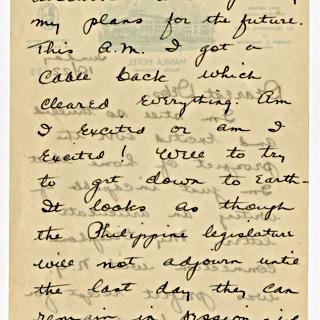 my plans for the future.
This A.M. I got a
Cable back which
cleared everything. Am
I excited or am I
Excited! Well to try
to get down to Earth-
It looks as though
the Philippine legislature
will not adjourn until
the last day they can
remain in session